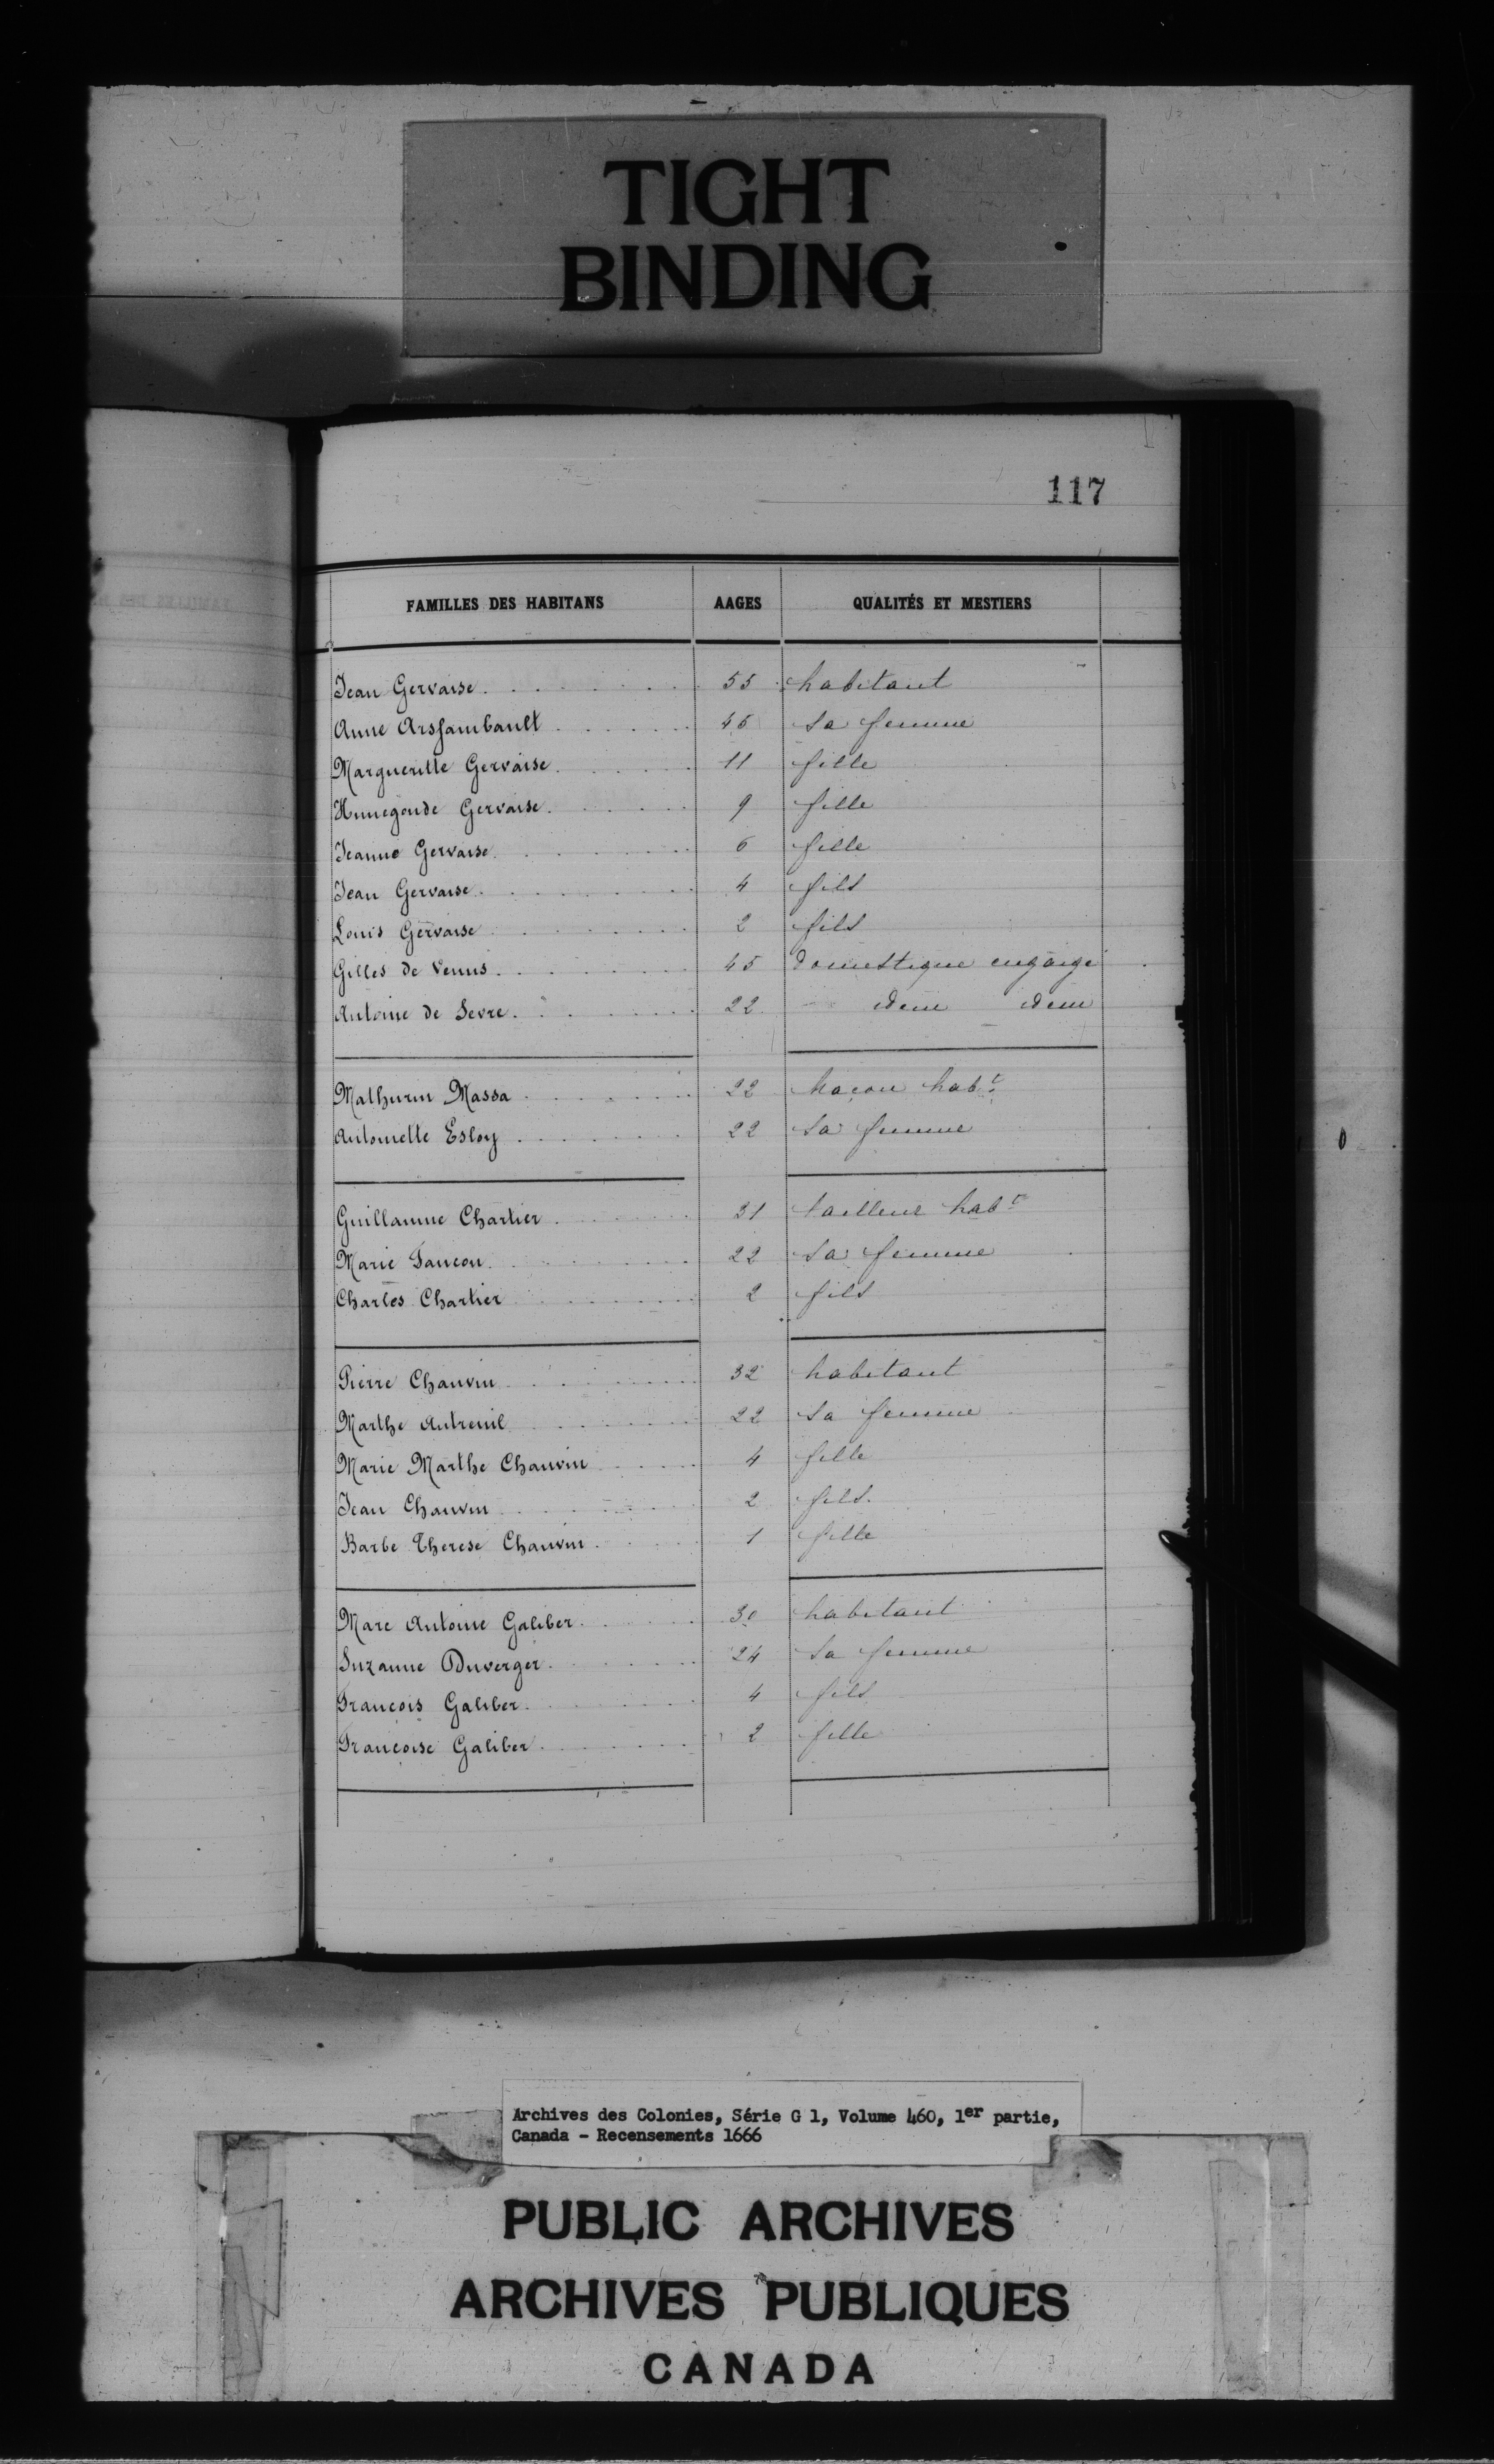 TIGHT
BINDING
117
FAMILLES DES HABITANS AAGES QUALITÉS ET MESTIERS
Jean Gervaise 55 habitant
Anne Arsfambault 46 sa femme
Margueritte Gervaise 11 fille
Hunegonde Gervaise 9 fille
Jeanne Gervaise 6 fille
Jean Gervaise 4 fils
Louis Gervaise 2 fils
Gilles de Venus 45 domestique engaigé
Antoine de Sevre 22 idem idem
Mathurin Massa 22 Maçon habt
Antoinette Esloy 22 sa femme
Guillaume Chartier 31 tailleur habt
Marie Faucon 22 sa femme
Charles Chartier 2 fils
Pierre Chauvin 32 habitant
Marthe Autreuil 22 sa femme
Marie Marthe Chauvin 4 fille
Jean Chauvin 2 fils
Barbe Therese Chauvin 1 fille
Marc Antoine Galiber 30 habitant
Suzanne Duverger 24 sa femme
François Galiber 4 fils
Françoise Galiber 2 fille
Archives des Colonies, Série G 1, Volume 460, 1er partie,
Canada - Recensements 1666
PUBLIC ARCHIVES
ARCHIVES PUBLIQUES
CANADA